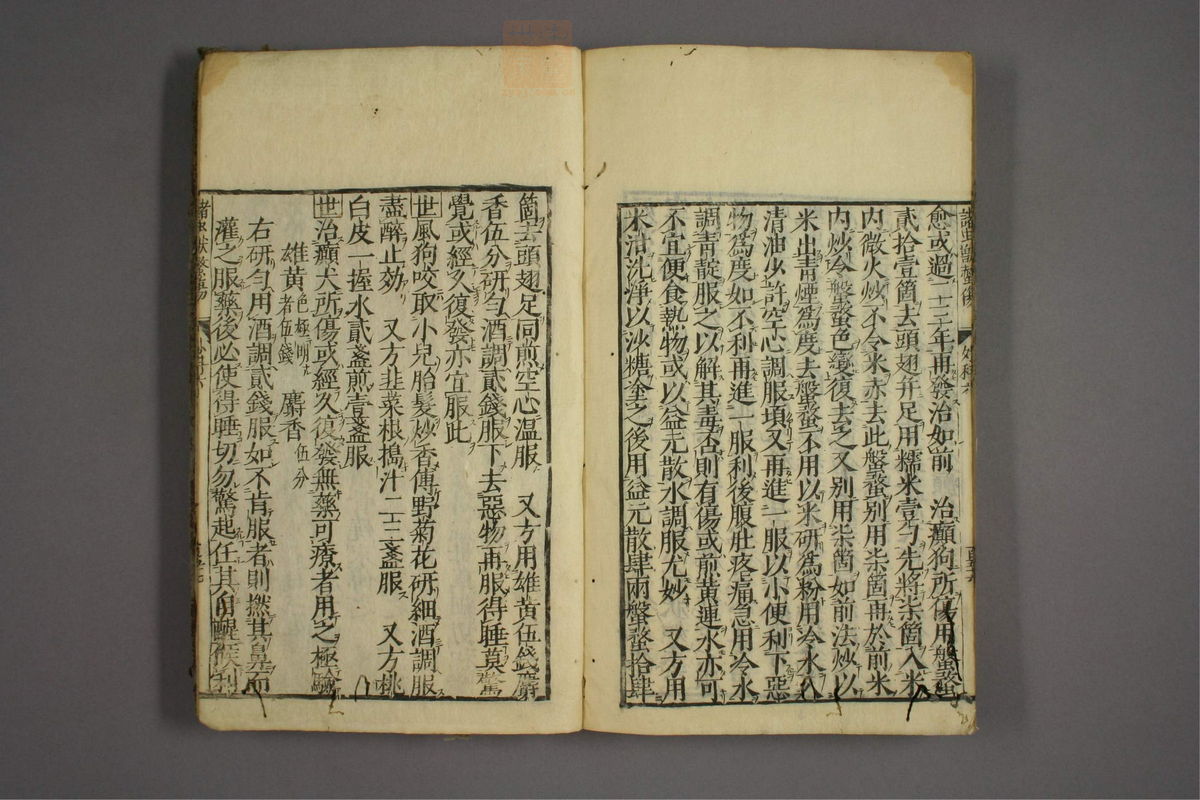 愈或過一二三年再發治如前　治癲狗所傷用盤蝥
貳拾壹箇去頭翅并足用糯米壹勺先將柒箇入米
内微火炒不令米赤去此盤蝥别用柒箇再於前米
内炒令盤蝥色變復去之又别用柒箇如前法炒以
米出青煙爲度去盤蝥不用以米研爲粉用冷水入
清油少許空心調服頃又再進一服以小便利下惡
物爲度如不利再進一服利後腹肚疼痛急用冷水
調青靛服之以解其毒否則有傷或煎黄連水亦可
不宜便食熱物或以益元散水調服尤妙　又方用
米泔洗淨以沙糖塗之後用益元散肆兩盤蝥拾肆
箇去頭翅足同煎空心温服　又方用雄黄伍錢麝
香伍分研勻酒調貳錢服下去惡物再服得睡莫驚
覺或經久復發亦宜服此
世風狗咬取小兒胎髮炒香傅野菊花研細酒調服
盡醉止効　又方韭菜根搗汁二三盞服　又方桃
白皮一握水貳盞煎壹盞服
世治癲犬所傷或經久復發無藥可療者用之極驗
雄黄色極明者伍錢　麝香伍分
右研勻用酒調貳錢服如不肯服者則撚其鼻而
灌之服藥後必使得睡切勿驚起任其自醒候利